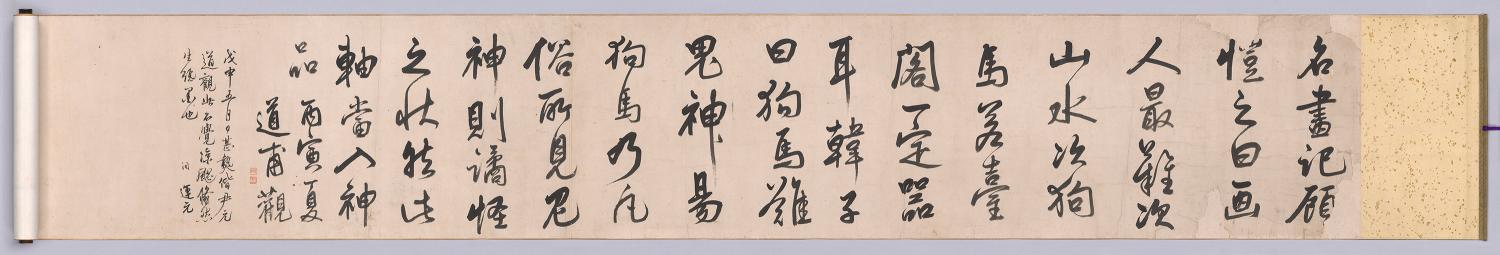 名畫記顧
愷之曰画
人最難次
山水次狗
馬若臺
閣一定器
耳韓子
曰狗馬難
鬼神易
狗馬乃凡
俗所見鬼
神則譎怪
之狀然此
軸當入神
品 丙寅夏
道甫觀
戊申五月日甚熱偕尹元
道觀此不覺涼颸翛然
生墨也 同 運元